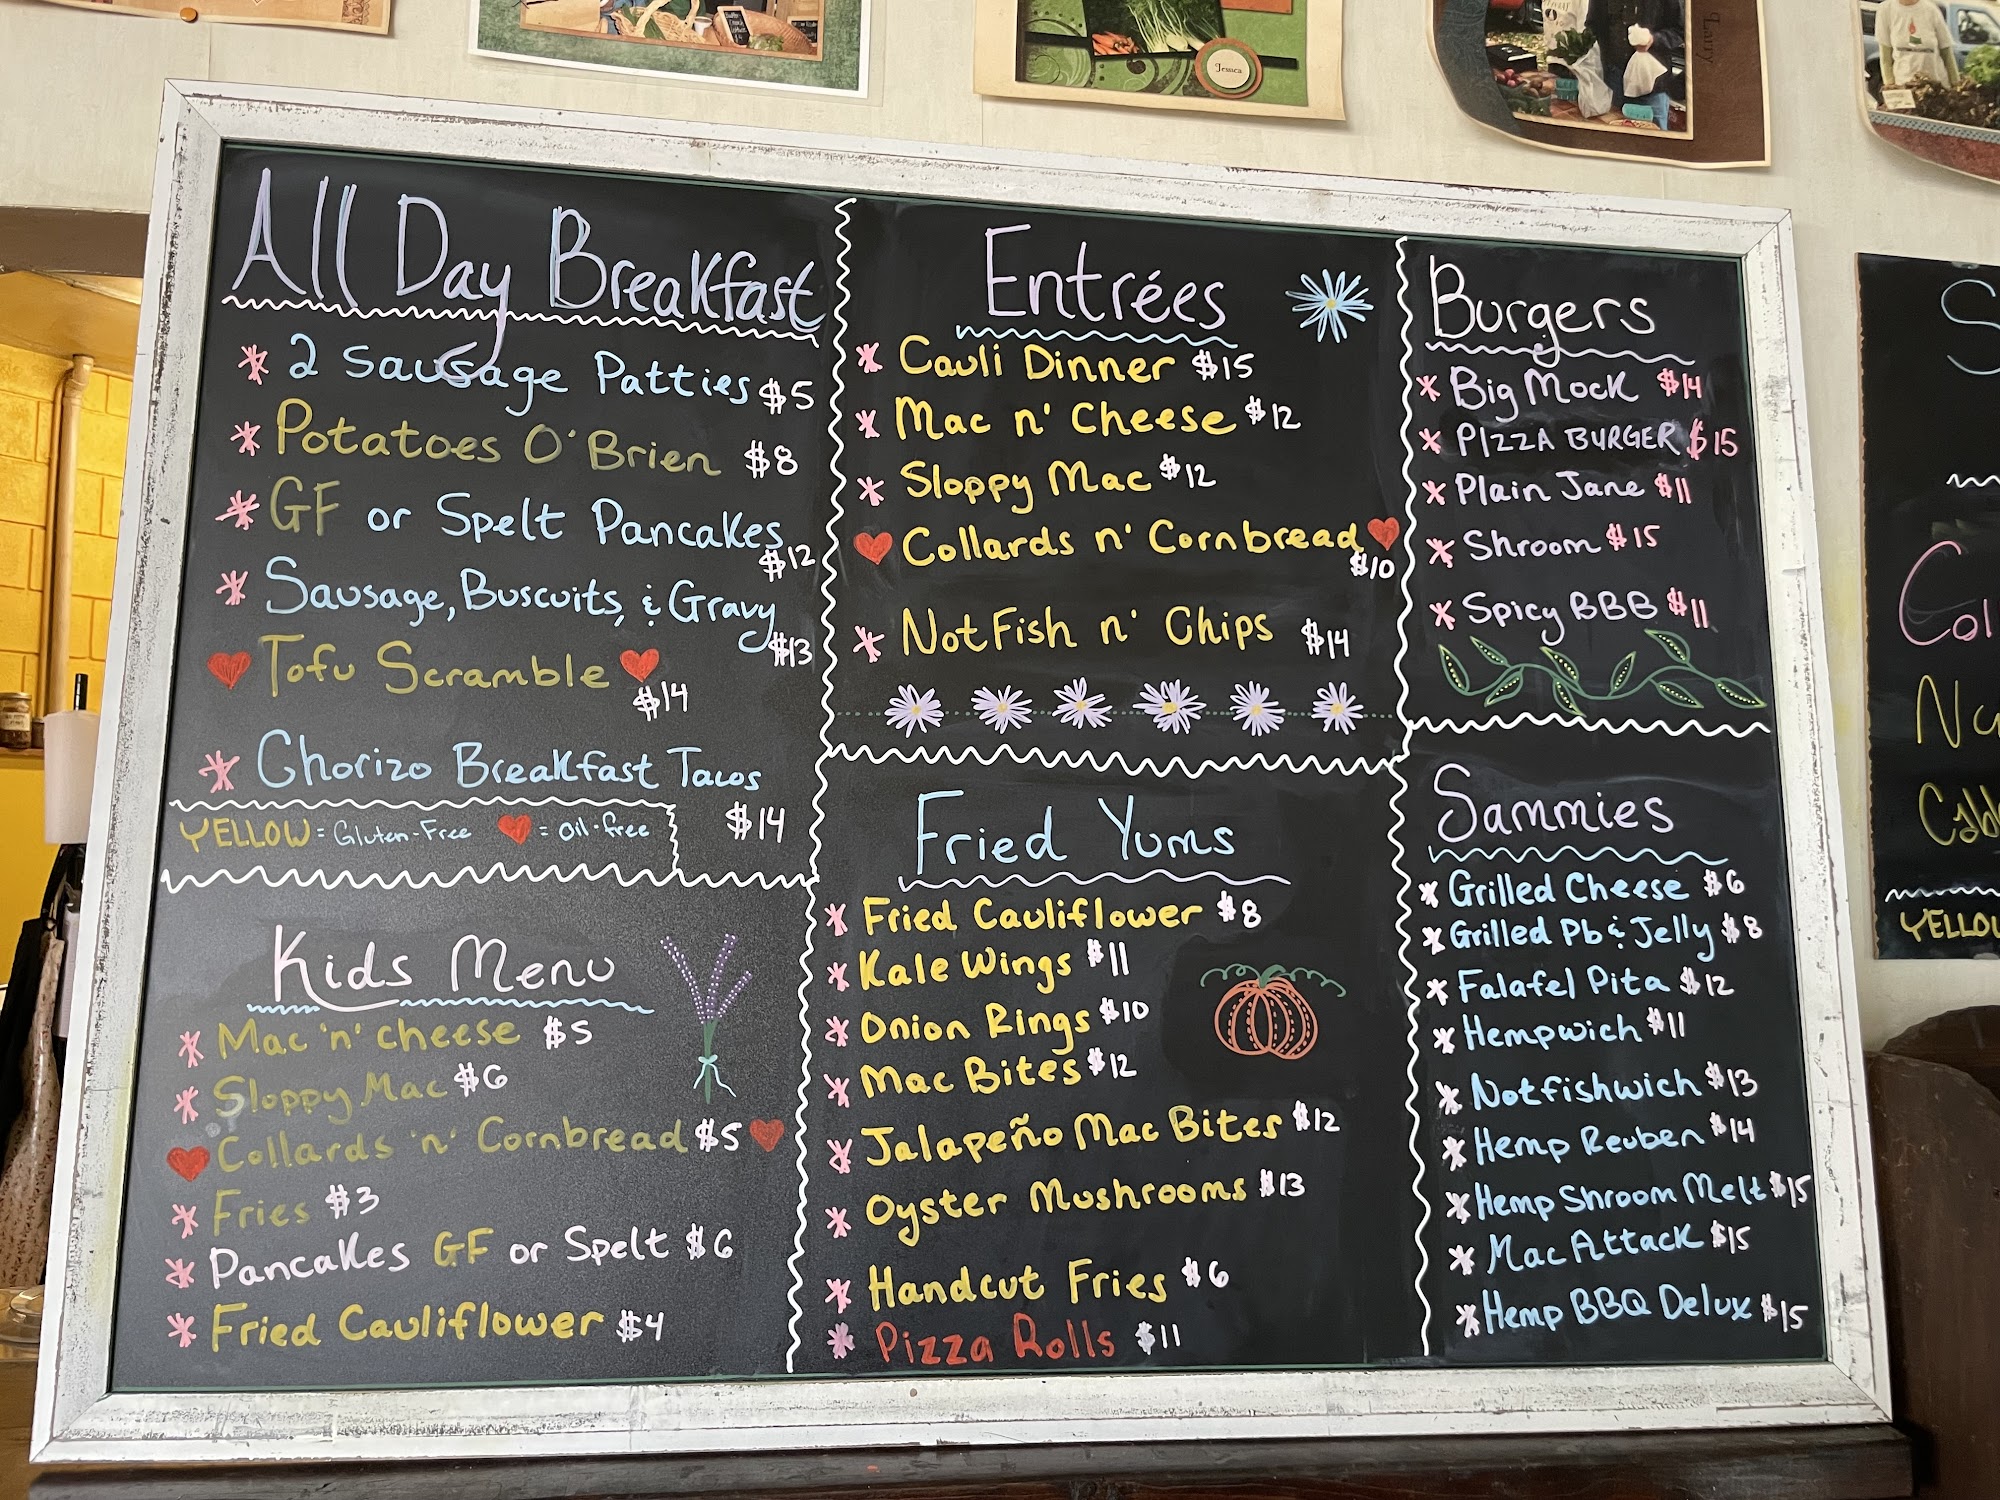 Jessica
Larry
All Day Breakfast
* 2 Sausage Patties $5
* Potatoes O'Brien $8
* GF or Spelt Pancakes
$12
* Sausage, Buscuits, & Gravy
$13
Tofu Scramble
$14
* Chorizo Breakfast Tacos
$14
YELLOW = Gluten-Free ♥ = oil-free
Kids Menu
* Mac 'n' cheese $5
* Sloppy Mac $6
♥ Collards 'n' Cornbread $5 ♥
* Fries $3
* Pancakes GF or Spelt $6
* Fried Cauliflower $4
Entrées
* Cauli Dinner $15
* Mac n' Cheese $12
* Sloppy Mac $12
♥ Collards n' Cornbread ♥
$10
* NotFish n' Chips $14
Fried Yums
* Fried Cauliflower $8
* Kale Wings $11
* Onion Rings $10
* Mac Bites $12
* Jalapeño Mac Bites $12
* Oyster Mushrooms $13
* Handcut Fries $6
* Pizza Rolls $11
Burgers
* Big Mock $14
* PIZZA BURGER $15
* Plain Jane $11
* Shroom $15
* Spicy BBB $11
Sammies
* Grilled Cheese $6
* Grilled Pb & Jelly $8
* Falafel Pita $12
* Hempwich $11
* Notfishwich $13
* Hemp Reuben $14
* Hemp Shroom Melt $15
* Mac Attack $15
* Hemp BBQ Delux $15